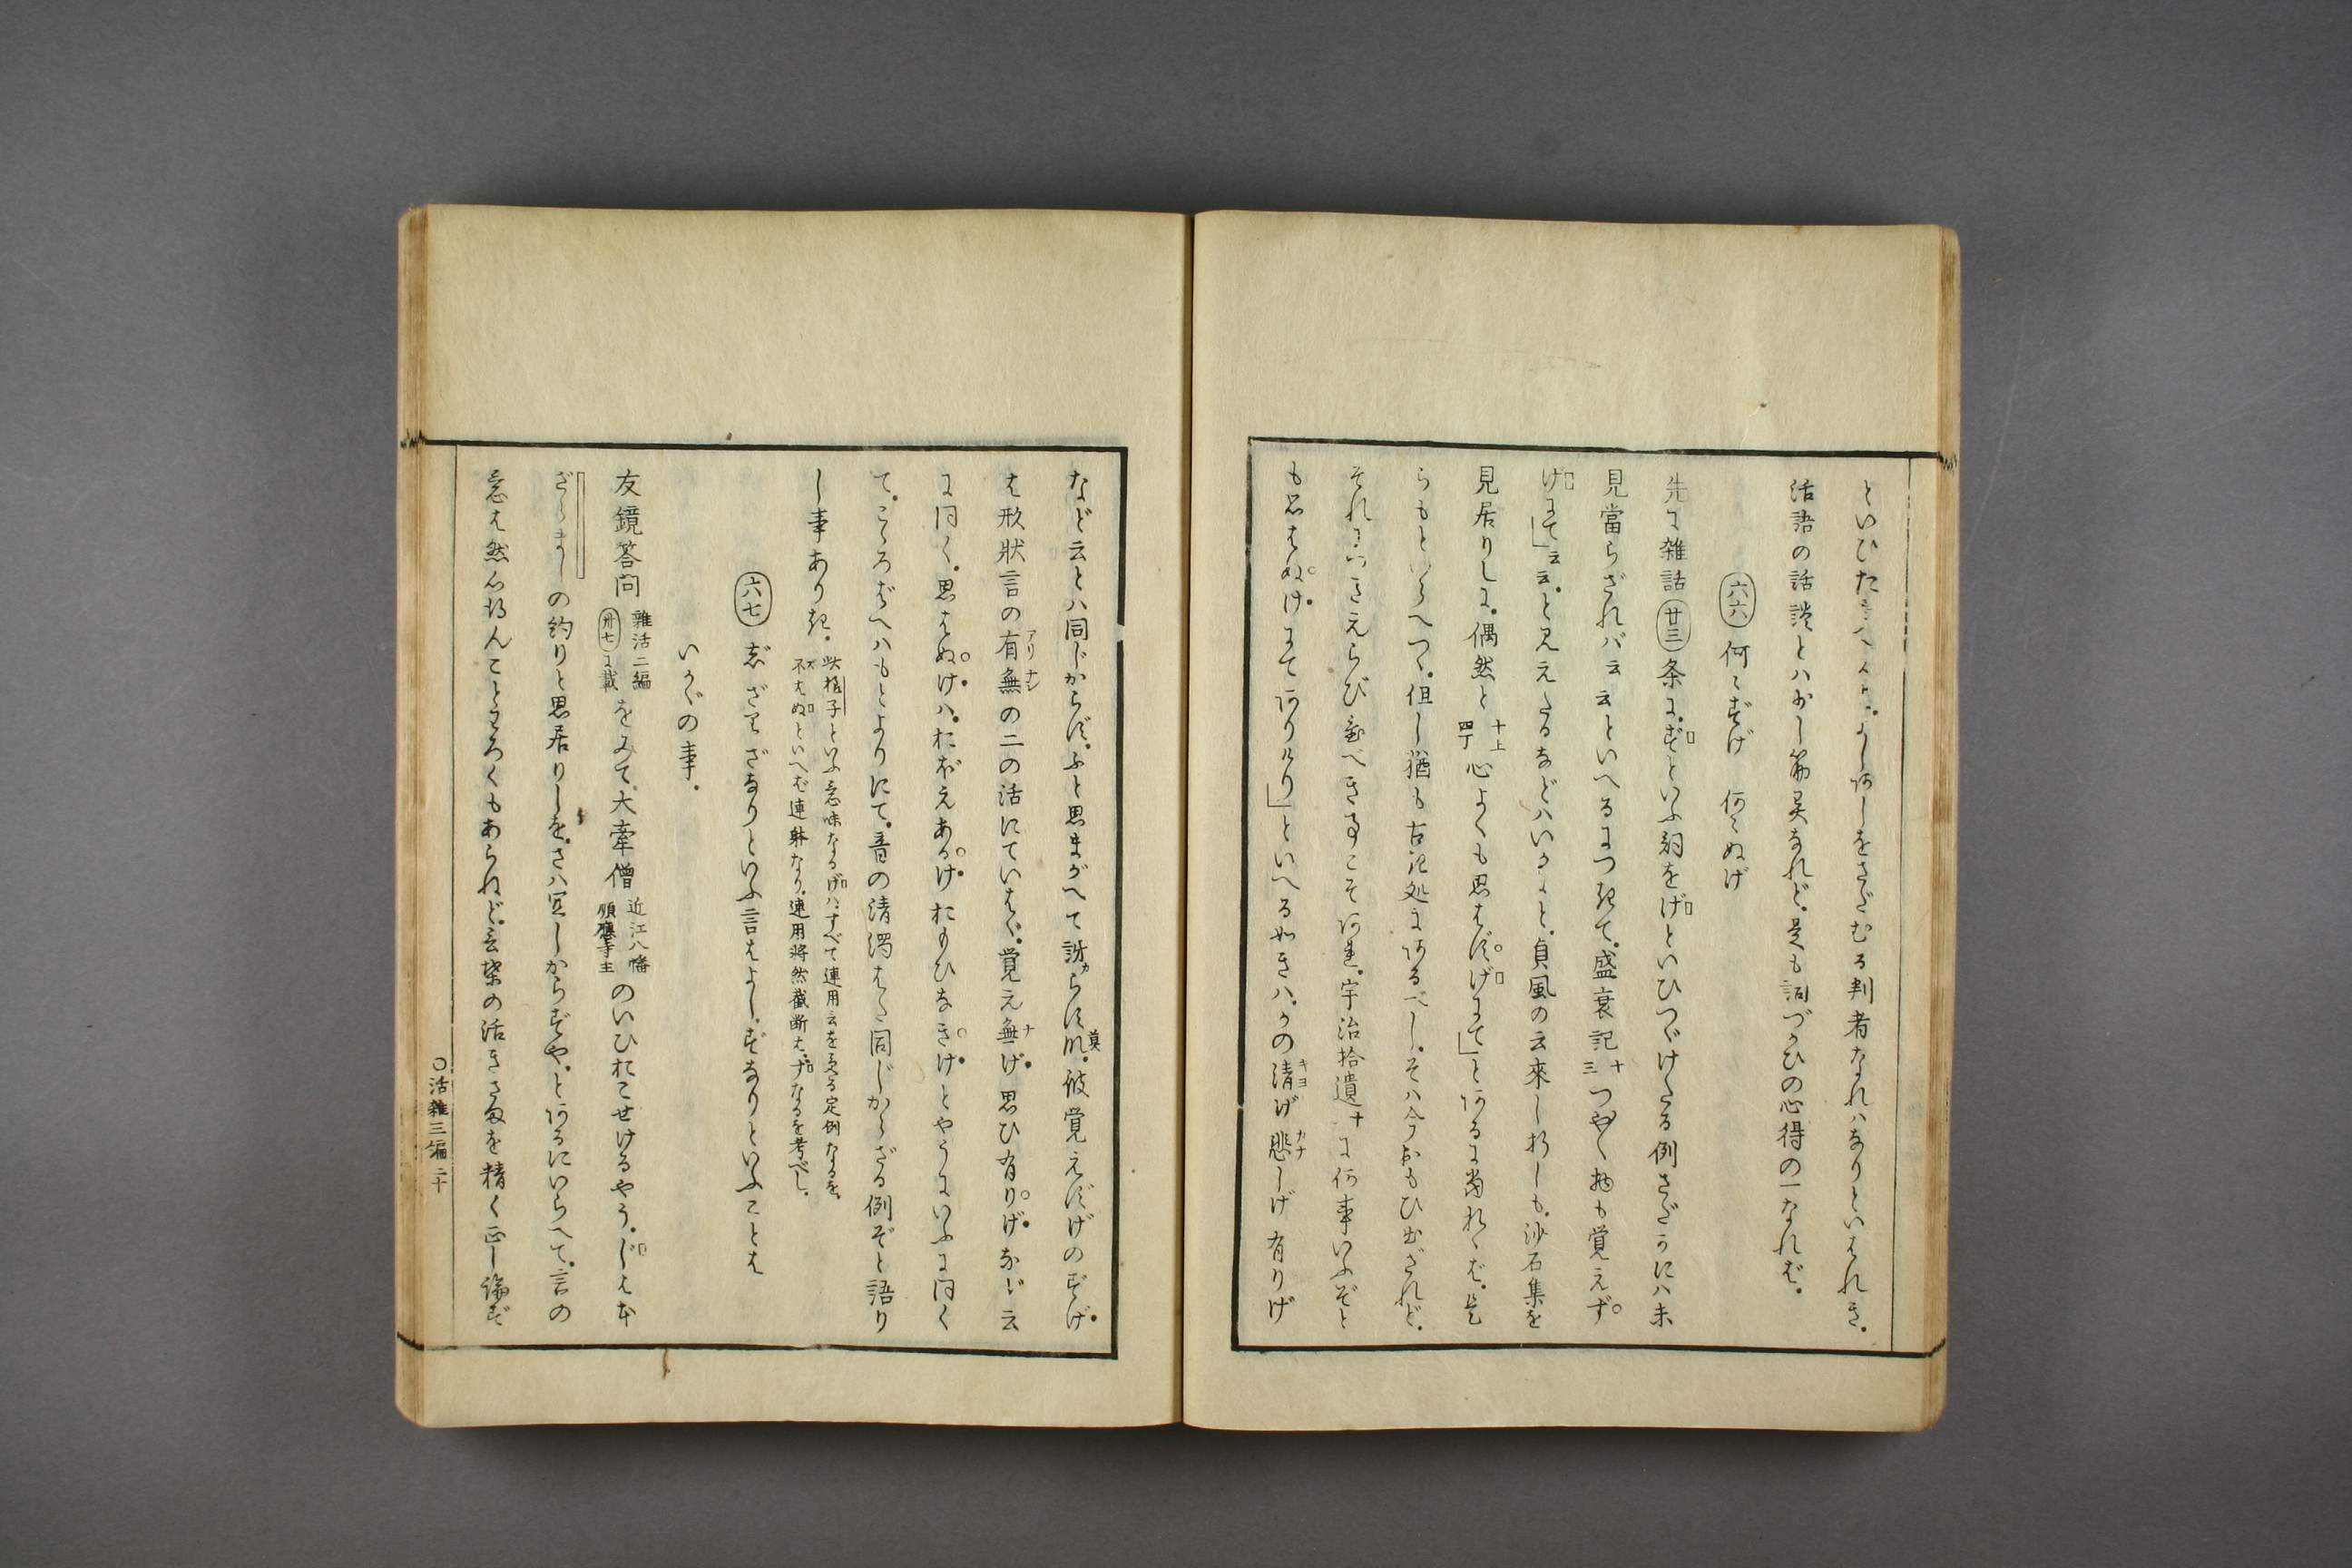 といひた よし何しをさだむる判者なれハなりといはれき。
活語の活談とハ少し筋異なれど。是も詞づかひの心得の一なれバ。
六六 何〻ずげ 何〻ぬげ
先に雑話廿三条に。ずといふ詞をげといひつゞけたる例さだかにハ未
見當らざれバ云云といへるにつきて。盛衰記十三つや〳〵物も覚えず
げにて」云云。と見えたるなどハいかゞと。貞風の云來し折しも。沙石集を
見居りしに。偶然と十上四丁心よくも思はずげにて」とあるに當れゝバ。是
らもといらへつゝ。但し猶も古記処にあるべし。そハ今おもひ出ざれど。
それにいきえらび べき事こそあれ。宇治拾遺十に何事いふぞと
も思はぬけにてありけり」といへる如きハ。かの清げ悲しげ有りげ
などと云とハ同じからず。ふと思まがへて訝からず莫。彼覚えずげのずげ。
は形狀言の有無の二の活にていはゞ。覚え無げ思ひ有りげなど云
に同く。思はぬけハ。おぼえあるけおもひなきけとやうにいふに同く
て。こゝろばへハもとよりにて。音の清濁はた同じからざる例ぞと語り
し事ありき。此格子といふ意味なるげハ。すべて連用云をうくる定例なるを。
不はぬといへば連躰なり。連用将然截断は。ずなるを考べし。
六七 じざりざなりといふ言はよし。ずなりといふことは
いかゞの事。
友鏡答問雑活二編卅七に載をみて。大牽僧近江八幡願應寺主のいひおこせけるやう。じはな
ざらましの約りと思居りしを。さハ宜しからずや。とあるにいらへて。言の
意は然心得んことわろくもあらねど。言葉の活きさまを精く正し論ず
〇活雑三編 二十